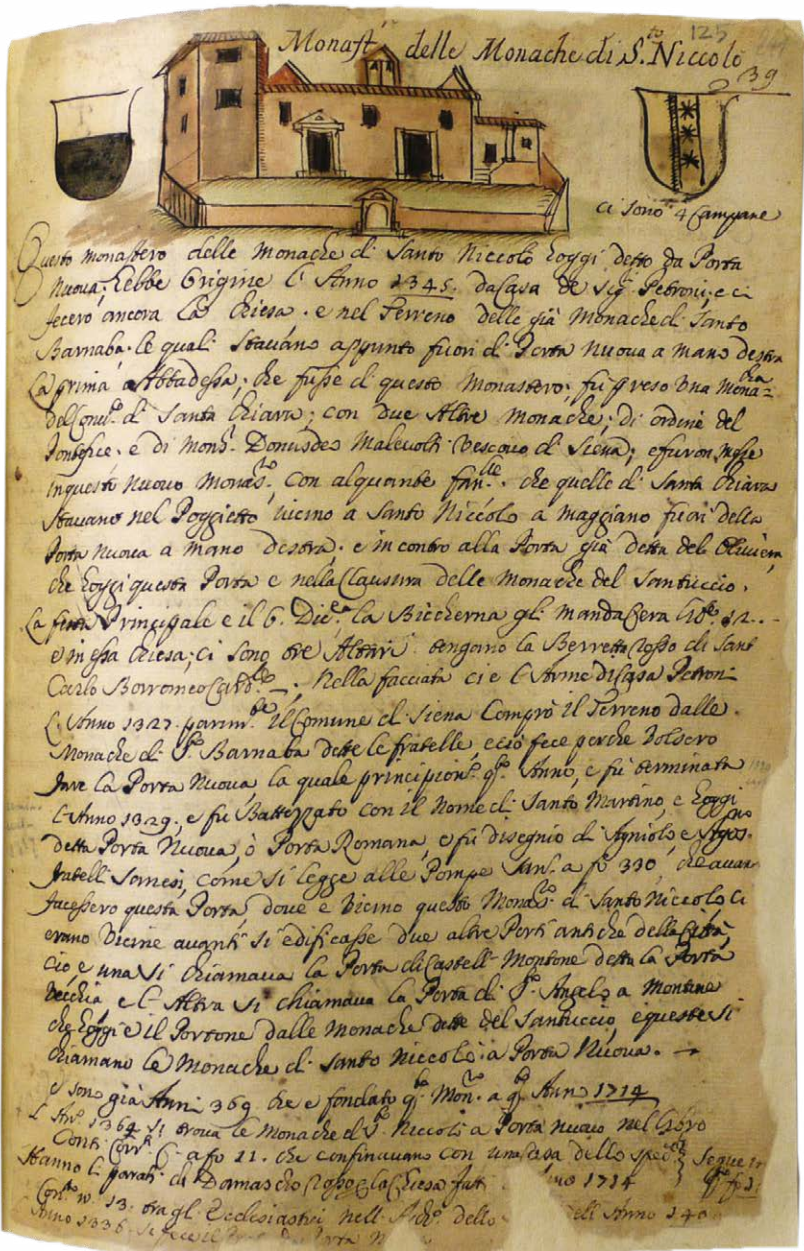 125
Monast.ro delle Monache di S.to Niccolo
39
ci sono 4 Campane
Questo monastero delle monache di Santo Niccolò hoggi detto da Porta
Nuova; hebbe Origine l'Anno 1345. da Casa de Sig.i Petroni; e ci
fecero ancora la Chiesa. e nel Terreno delle già Monache di Santo
Barnaba. le quali stavano appunto fuori di Porta Nuova a mano destra
La prima Abbadessa; che fusse di questo Monastero; fu preso una mona=cha
del Conv.to di Santa Chiara; con due Altre monache; di ordine del
Pontefice. e di Mons.r Donusdeo Malevolti Vescovo di Siena; e furon messe
in questo nuovo Monas.ro con alquante fan.lle. che quelle di Santa Chiara
stavano nel Poggietto vicino a Santo Niccolo a Maggiano fuori della
Porta Nuova a mano destra. e incontro alla Porta già detta dell'Oliviera
che hoggi questa Porta e nella Clausura delle monache del Santuccio.
La festa Principale e il 6. Dic.e la Biccherna gli manda Cera lib.e 12.
e in essa Chiesa; ci sono tre Altari tengono la Berretta Rossa di Sant
Carlo Borromeo Card.le. Nella facciata ci e l'Arme di Casa Petroni
L'Anno 1327. parim.te il Comune di Siena Comprò il Terreno dalle
Monache di S.to Barnaba dette le fratelle, e ciò fece perche Volsero
fare la Porta Nuova, la quale principion.o q.to Anno, e fu terminata
l'Anno 1329; e fu Battezzato con il Nome di Santo Martino, e hoggi
detta Porta Nuova, ò Porta Romana, e fu disegnio di Agniolo, e Agos.no
fratelli Sanesi, come si legge alle Pompe San. a fo 330, che avan
facessero questa Porta, dove e Vicino questo Monas.o di Santo Niccolo, ci
erano Vicine avanti si edificasse due altre Porti antiche della Città,
cio, e una si chiamava la Porta di Castell Montone detta la Porta
Vecchia e l'Altra si chiamava la Porta di S.to Angelo a Montone
che hoggi e il Portone dalle Monache dette del Santuccio, e queste si
chiamano le Monache di Santo Niccolo a Porta Nuova.
e sono già Anni 369 che e fondato q.to Mon.ro a q.to Anno 1714
L'An.o 1364 si trova le Monache di S.to Niccolo a Porta nuova nel Libro
Conti Corr.ti C. a fo 11. che confinavano con una Casa dello sped.le Segue
Hanno li parati di Damascho Rosso e la Chiesa 1714
13. ora gl'Ecclesiastici nell dello dell'Anno 140
Anno 1336 si fece il